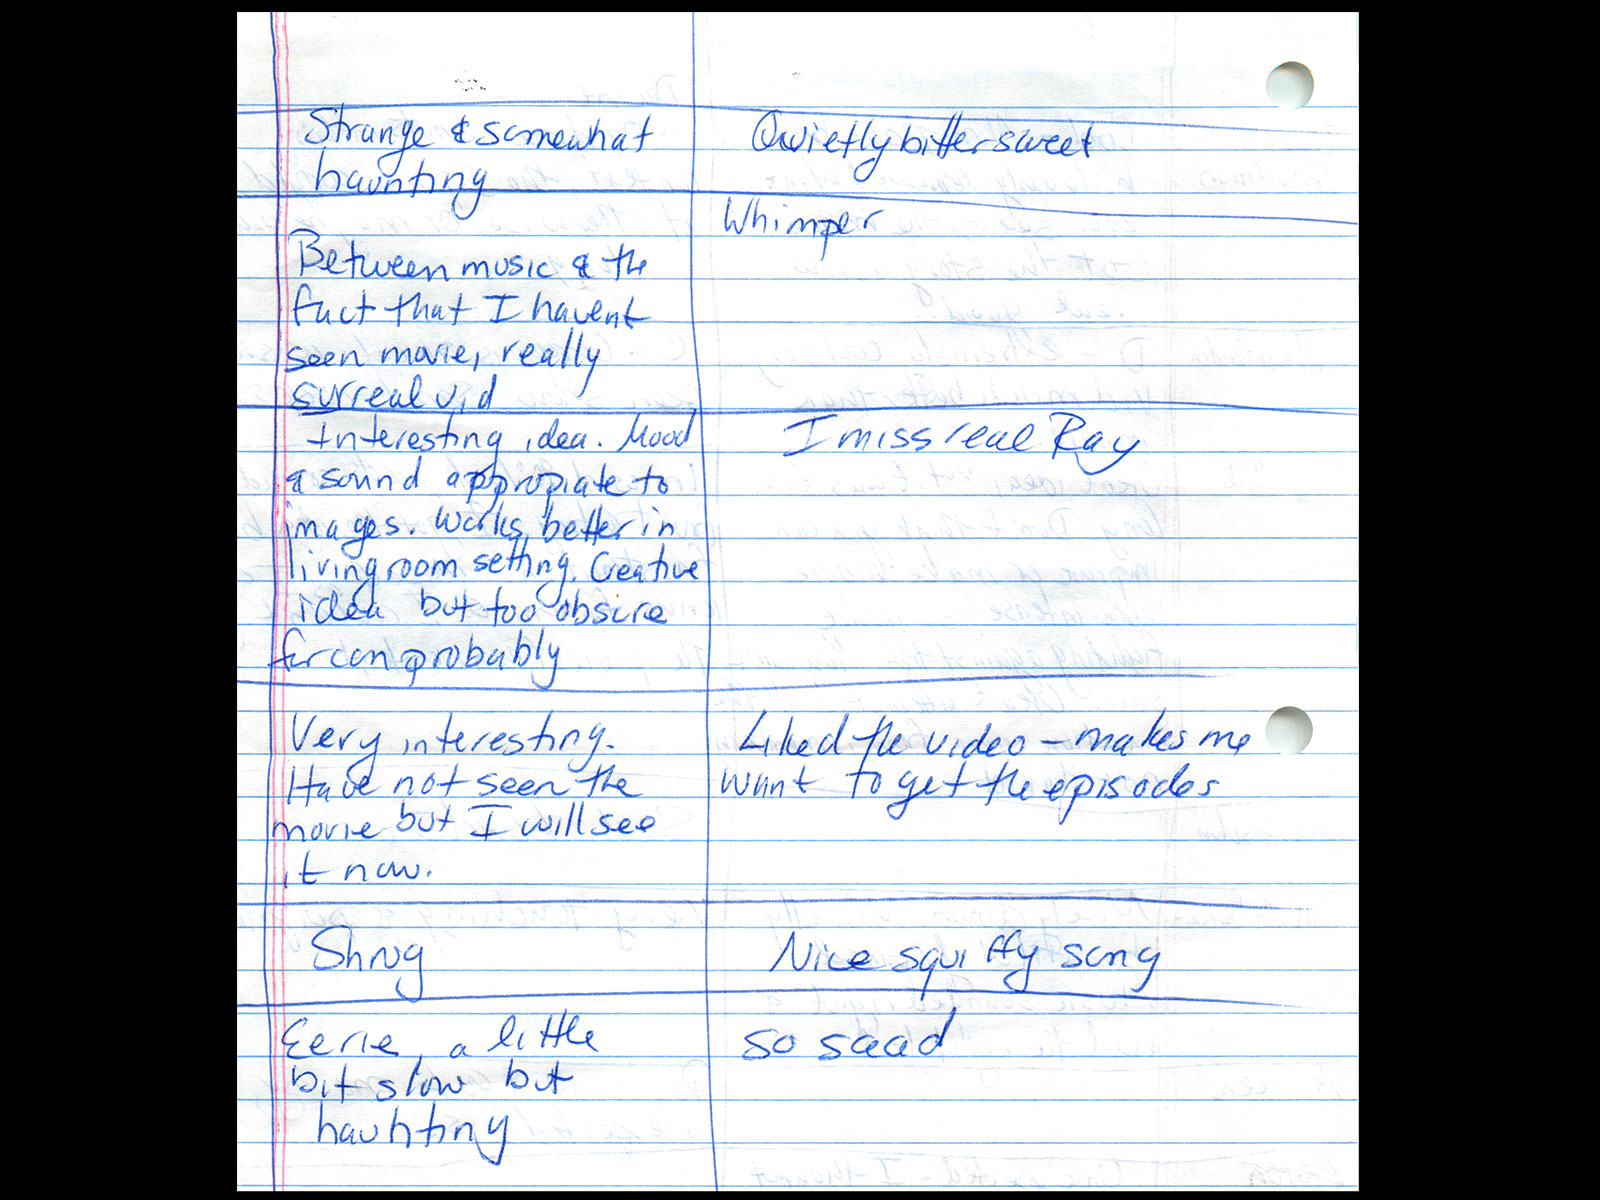 Strange & somewhat
haunting
Quietly bittersweet
Between music & the
fact that I havent
seen movie, really
surreal vid
Whimper
Interesting idea. Mood
& sound appropiate to
images. Works better in
living room setting. Creative
idea but too obscure
for con probably
I miss real Ray
Very interesting.
Have not seen the
movie but I will see
it now.
Liked the video – makes me
want to get the episodes
Shrug
Nice squiffy song
Eerie, a little
bit slow but
haunting
so saad